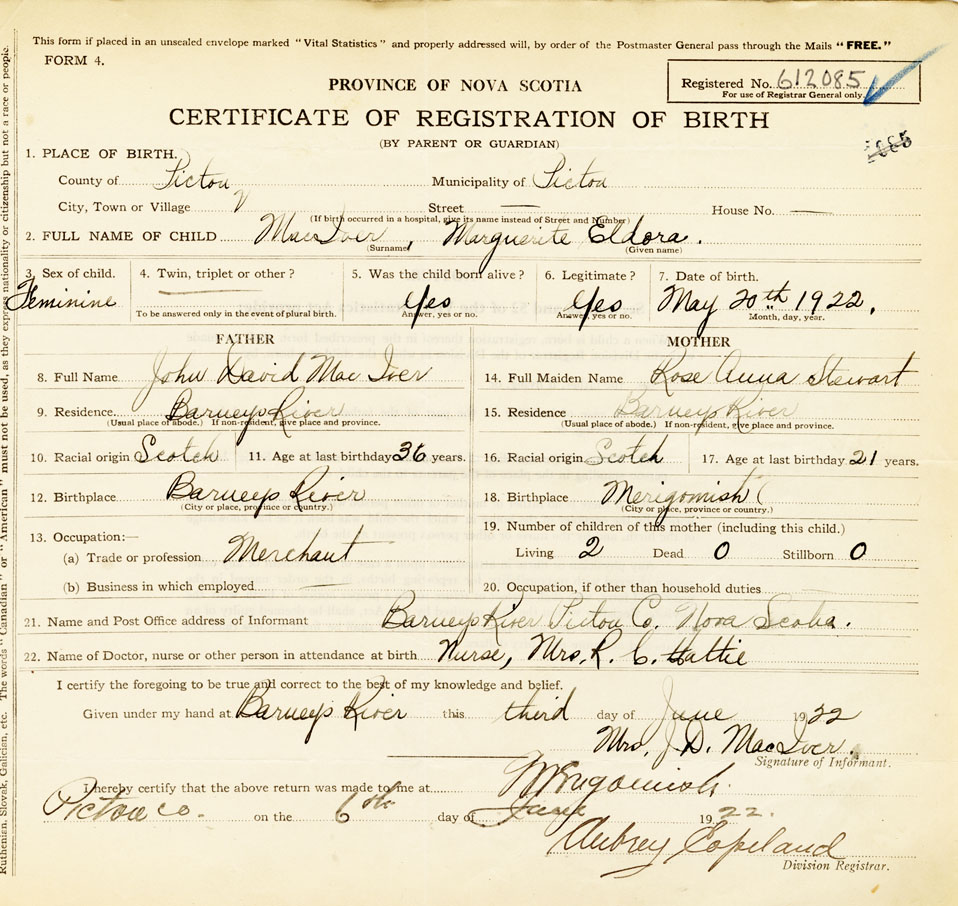 This form if placed in an unsealed envelope marked "Vital Statistics" and properly addressed will, by order of the Postmaster General pass through the Mails "FREE."
FORM 4.
Registered No. 612085
For use of Registrar General only.
PROVINCE OF NOVA SCOTIA
CERTIFICATE OF REGISTRATION OF BIRTH
(BY PARENT OR GUARDIAN)
1. PLACE OF BIRTH.
County of Pictou Municipality of Pictou
City, Town or Village Street — House No. —
(If birth occurred in a hospital, give its name instead of Street and Number)
2. FULL NAME OF CHILD MacIver, Marguerite Eldora.
(Surname) (Given name)
3. Sex of child. 4. Twin, triplet or other? 5. Was the child born alive? 6. Legitimate? 7. Date of birth.
Feminine — Yes Yes May 20th 1922.
To be answered only in the event of plural birth. Answer, yes or no. Answer, yes or no. Month, day, year.
FATHER MOTHER
8. Full Name John David MacIver 14. Full Maiden Name Rose Anna Stewart
9. Residence Barneys River 15. Residence Barneys River
(Usual place of abode.) If non-resident, give place and province. (Usual place of abode.) If non-resident, give place and province.
10. Racial origin Scotch 11. Age at last birthday 36 years. 16. Racial origin Scotch 17. Age at last birthday 21 years.
12. Birthplace Barneys River 18. Birthplace Merigomish
(City or place, province or country.) (City or place, province or country.)
19. Number of children of this mother (including this child.)
13. Occupation:—
(a) Trade or profession Merchant Living 2 Dead 0 Stillborn 0
(b) Business in which employed — 20. Occupation, if other than household duties
21. Name and Post Office address of Informant Barneys River Pictou Co. Nova Scotia.
22. Name of Doctor, nurse or other person in attendance at birth Nurse, Mrs. R. C. Hattie
I certify the foregoing to be true and correct to the best of my knowledge and belief.
Given under my hand at Barneys River this third day of June 1922
Mrs. J. D. MacIver.
Signature of Informant.
I hereby certify that the above return was made to me at Merigomish.
Pictou Co. on the 6th day of June 1922.
Aubrey Copeland
Division Registrar.
Ruthenian, Slovak, Galician, etc. The words "Canadian" or "American" must not be used, as they express nationality or citizenship but not a race or people.